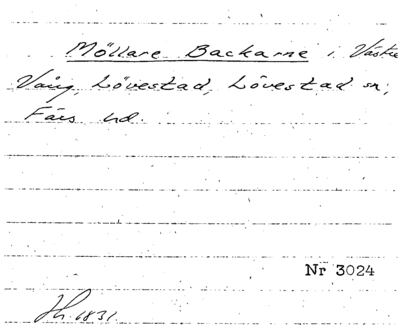 Möllare Backarne i Västre
Vång, Lövestad, Lövestad sn,
Färs hd.
Nr 3024
Jh. 1831.